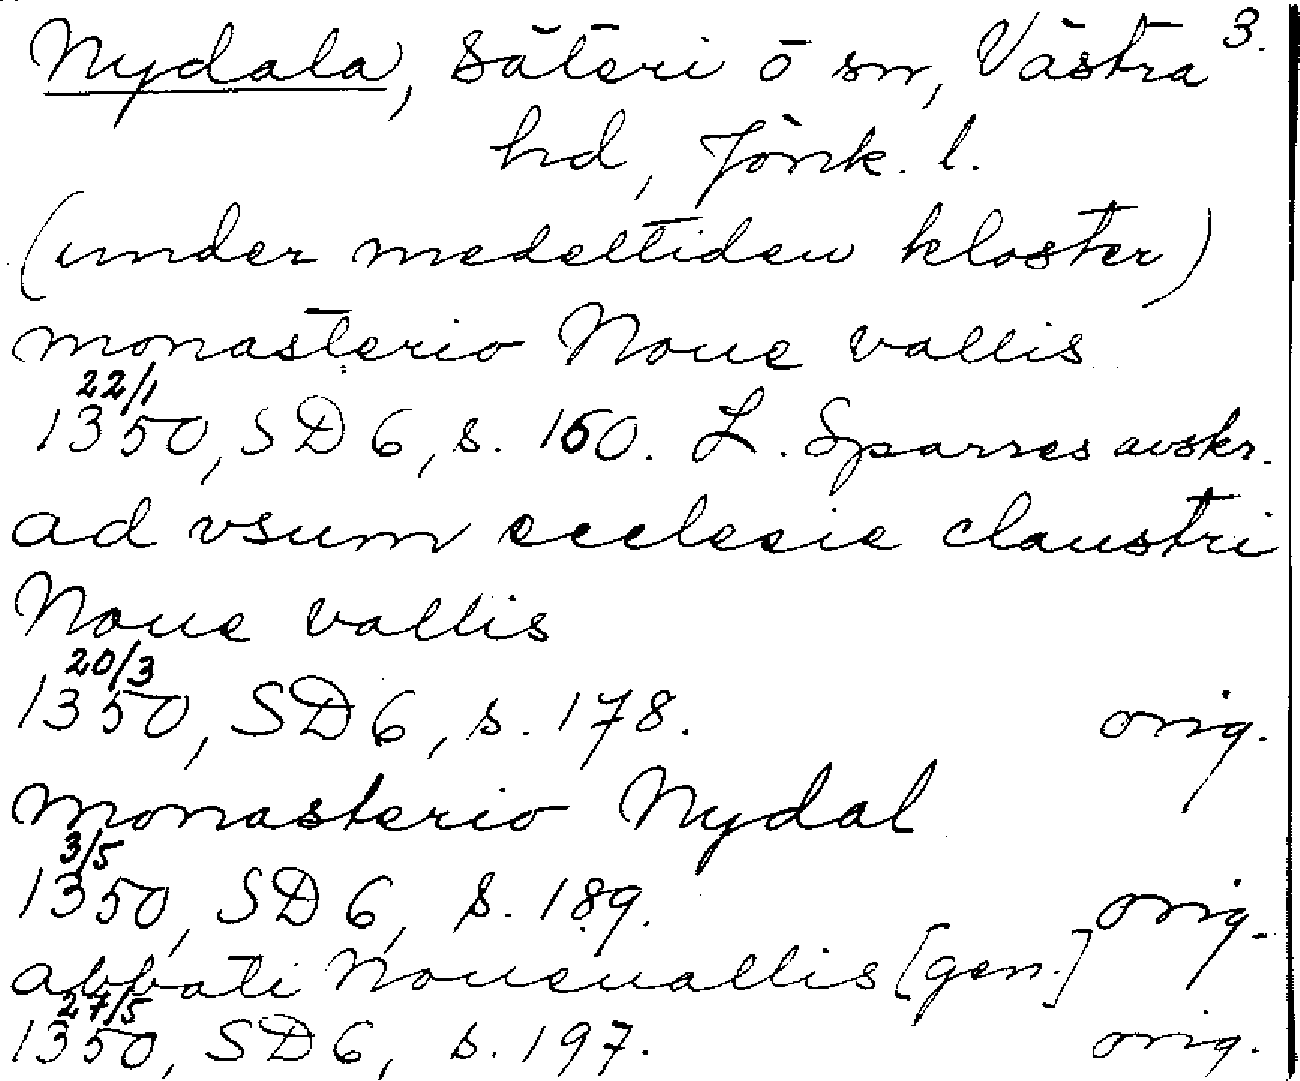 Nydala, Säteri o sn, Västra 3.
hd, Jönk. l.
(under medeltiden kloster)
monasterio Noue vallis
22/1
1350, SD 6, s. 160. L. Sparres avskr.
ad vsum ecclesie claustri
Noue vallis
20/3
1350, SD 6, s. 178. orig.
monasterio Nydal
3/5
1350, SD 6, s. 189. orig.
abbati Noueuallis [gen.]
27/5
1350, SD 6, s. 197. orig.